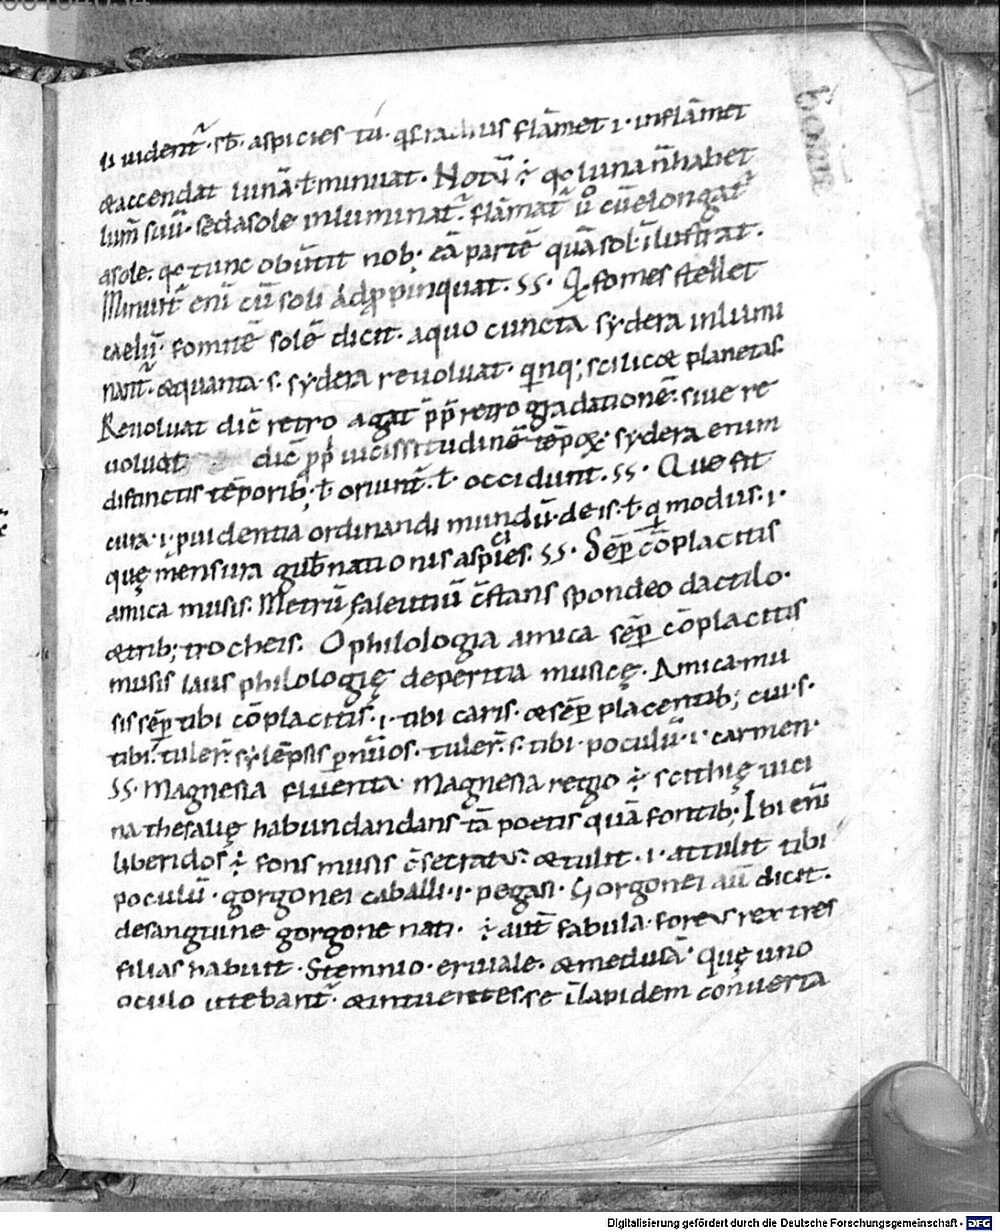 ii uident᷒· st̄· aspicies tū· qs radius flāmet ·i· inflāmet
& accendat lunā· ł minuat· Notū ÷ qđ luna n̄ habet
lum̄ suū· sed a sole inluminat᷒· flāmat᷒ ů cū elongat᷒
a sole· qđ tunc obūtit nob· eā partē quā sol illustrat·
Minuit᷒ enī cū soli adpp̄inquat· SS· Q fomes stellet
caelū· fomitē solē dicit· a quo cuncta sydera inlumi
nant᷒· & quanta ·s· sydera reuoluat· qinq; scilic& planetas·
Reuoluat dic̄ retro agat pp̄ retrogradationē· siue re
uoluat dic̄ pp̄ uicissitudinē tēpoꝝ· sydera enim
distinctis tēporib; ł oriunt᷒· ł occidunt· SS· Que sit
cura ·i· puidentia ordinandi mundū· deis· ł q modus ·i·
quę mensura gub̄nationis aspicies· SS· Sēp cōplacitis
amica musis· Metrū faleutiū c̄stans spondeo dactilo·
& trib; trocheis· O philologia amica sēp cōplacitis
musis laus philologię de peritia musicę· Amica mu
sis sēp tibi cōplacitis ·i· tibi caris· & sēp placentib; cui ·s·
tibi· tuler̄ sylēpsis p nūos· tuler̄ ·s· tibi poculū ·i· carmen·
SS· Magnesia fluenta· Magnesia regio ÷ scithię uici
na thesalię habundandans tā poetis quā fontib; Ibi enī
liberidos ÷ fons musis c̄secratus· & tulit ·i· attulit tibi
poculū· gorgonei caballi ·i· pegasi· Gorgonei aū dicit·
de sanguine gorgone nati· ÷ aut̄ fabula· forcus rex tres
filias habuit· Stemnio· eriuale· & medusā· quę uno
oculo utebant᷒· & intuentes se ī lapidem conuerta